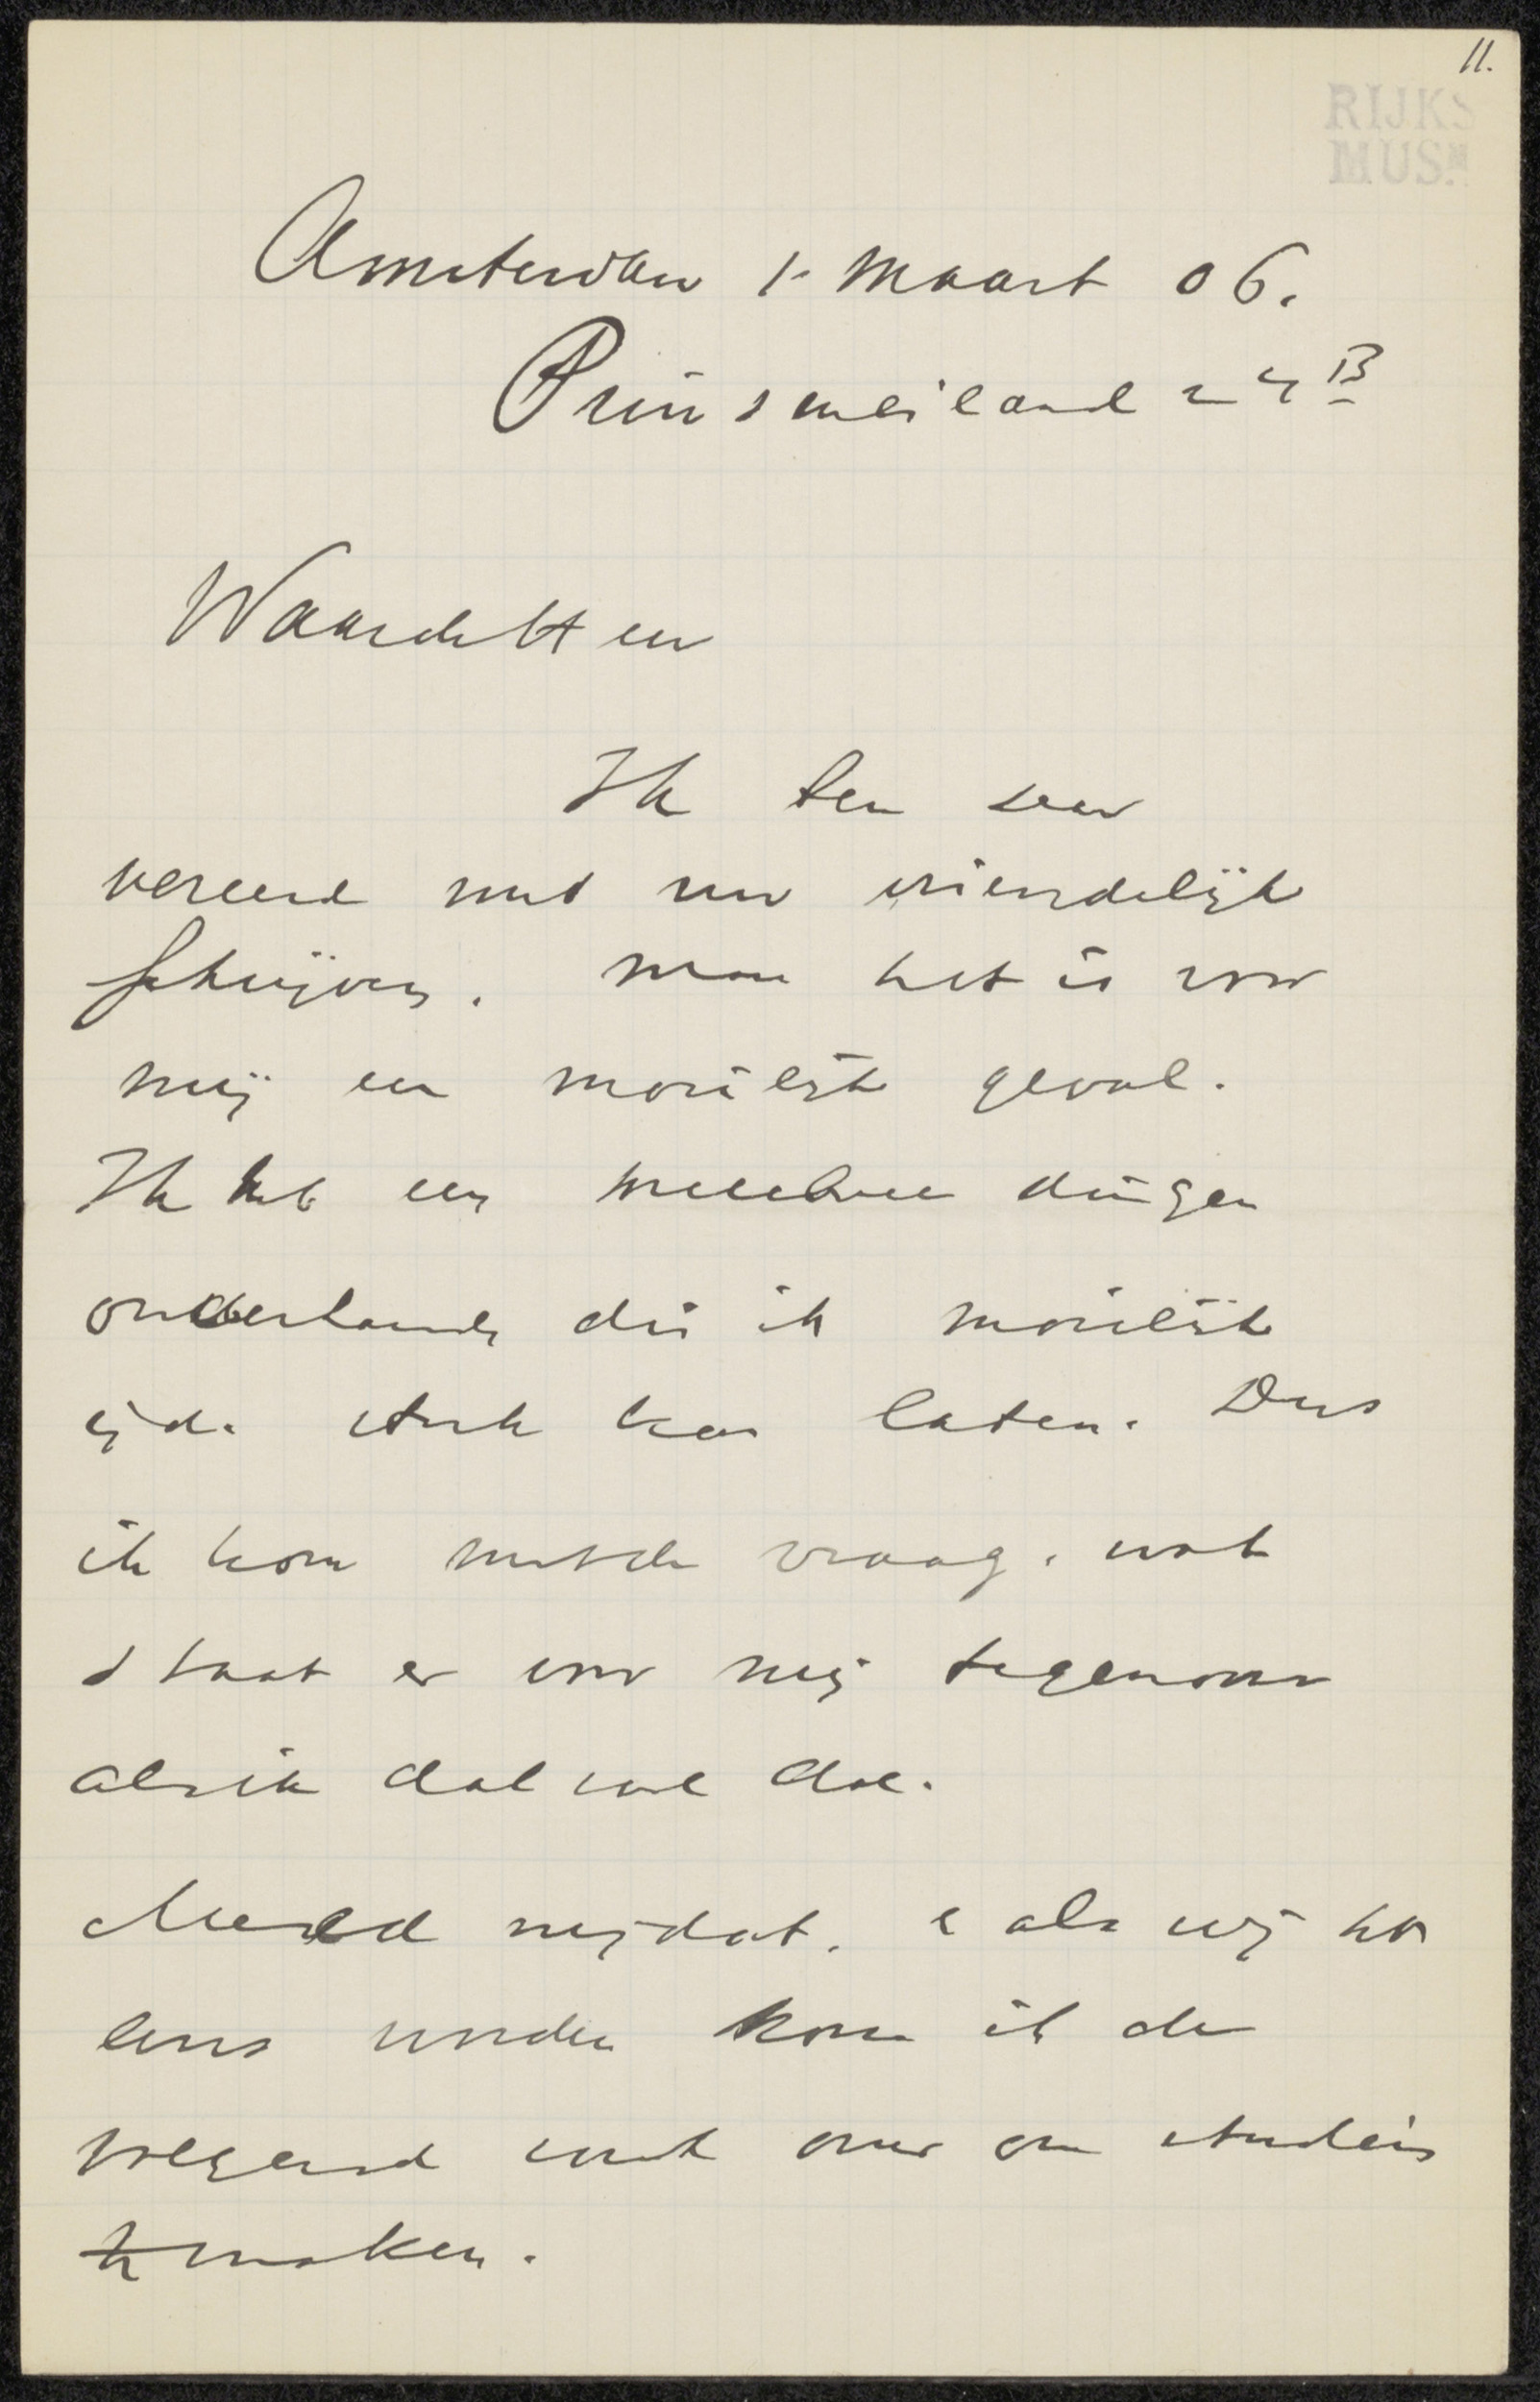 11.
RIJKS
MUSM
Amsterdam 1 Maart 06.
Prinseneiland 24 B
Waarde Heer
Ik ben zeer
vereerd met uw vriendelijk
schrijven. Maar het is voor
mij een moeielijk geval.
Ik heb een meerdere dingen
onderhands die ik moeielijk
in de steek kan laten. Dus
ik kom met de vraag. wat
staat er voor mij tegenover
als ik dat wel doe.
Meld mij dat. e als wij het
eens worden kom ik de
volgend week over om studies
te maken.